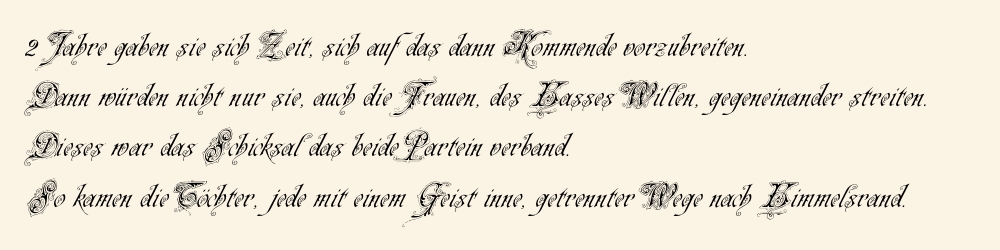 2 Jahre gaben sie sich Zeit, sich auf das dann Kommende vorzubreiten.
Dann würden nicht nur sie, auch die Frauen, des Hasses Willen, gegeneinander streiten.
Dieses war das Schicksal das beide Partein verband.
So kamen die Töchter, jede mit einem Geist inne, getrennter Wege nach Himmelsrand.